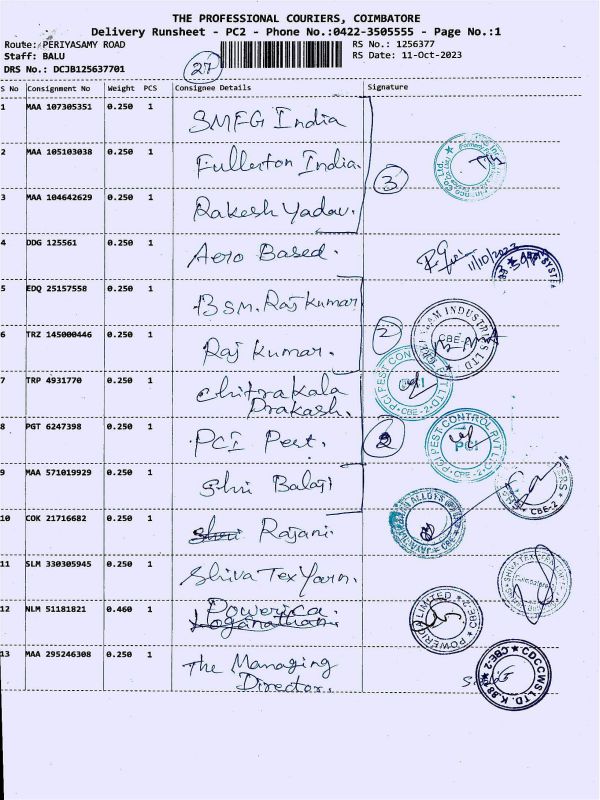 THE PROFESSIONAL COURIERS, COIMBATORE
Delivery Runsheet - PC2 - Phone No.:0422-3505555 - Page No.:1
Route: PERIYASAMY ROAD RS No.: 1256377
Staff: BALU RS Date: 11-Oct-2023
DRS No.: DCJB125637701 27
S No Consignment No Weight PCS Consignee Details Signature
1 MAA 107305351 0.250 1 SMFG India
2 MAA 105103038 0.250 1 Fullerton India. 3
3 MAA 104642629 0.250 1 Rakesh Yadav.
4 DDG 125561 0.250 1 Aero Based. 11/10/2023
5 EDQ 25157558 0.250 1 BSM. Raj Kumar
6 TRZ 145000446 0.250 1 Raj Kumar. 2
7 TRP 4931770 0.250 1 Chitrakala
Prakash.
8 PGT 6247398 0.250 1 PCI Pest. 2
PCI PEST CONTROL PVT LTD
PCI
9 MAA 571019929 0.250 1 Shri Balaji
CBE-2
10 COK 21716682 0.250 1 Rajani.
11 SLM 330305945 0.250 1 Shiva Tex Yarn.
12 NLM 51181821 0.460 1 Powerica.
Loganathan
POWERICA LIMITED CBE-2
13 MAA 295246308 0.250 1 The Managing
Director.
CDCCWS LTD. CBE-2